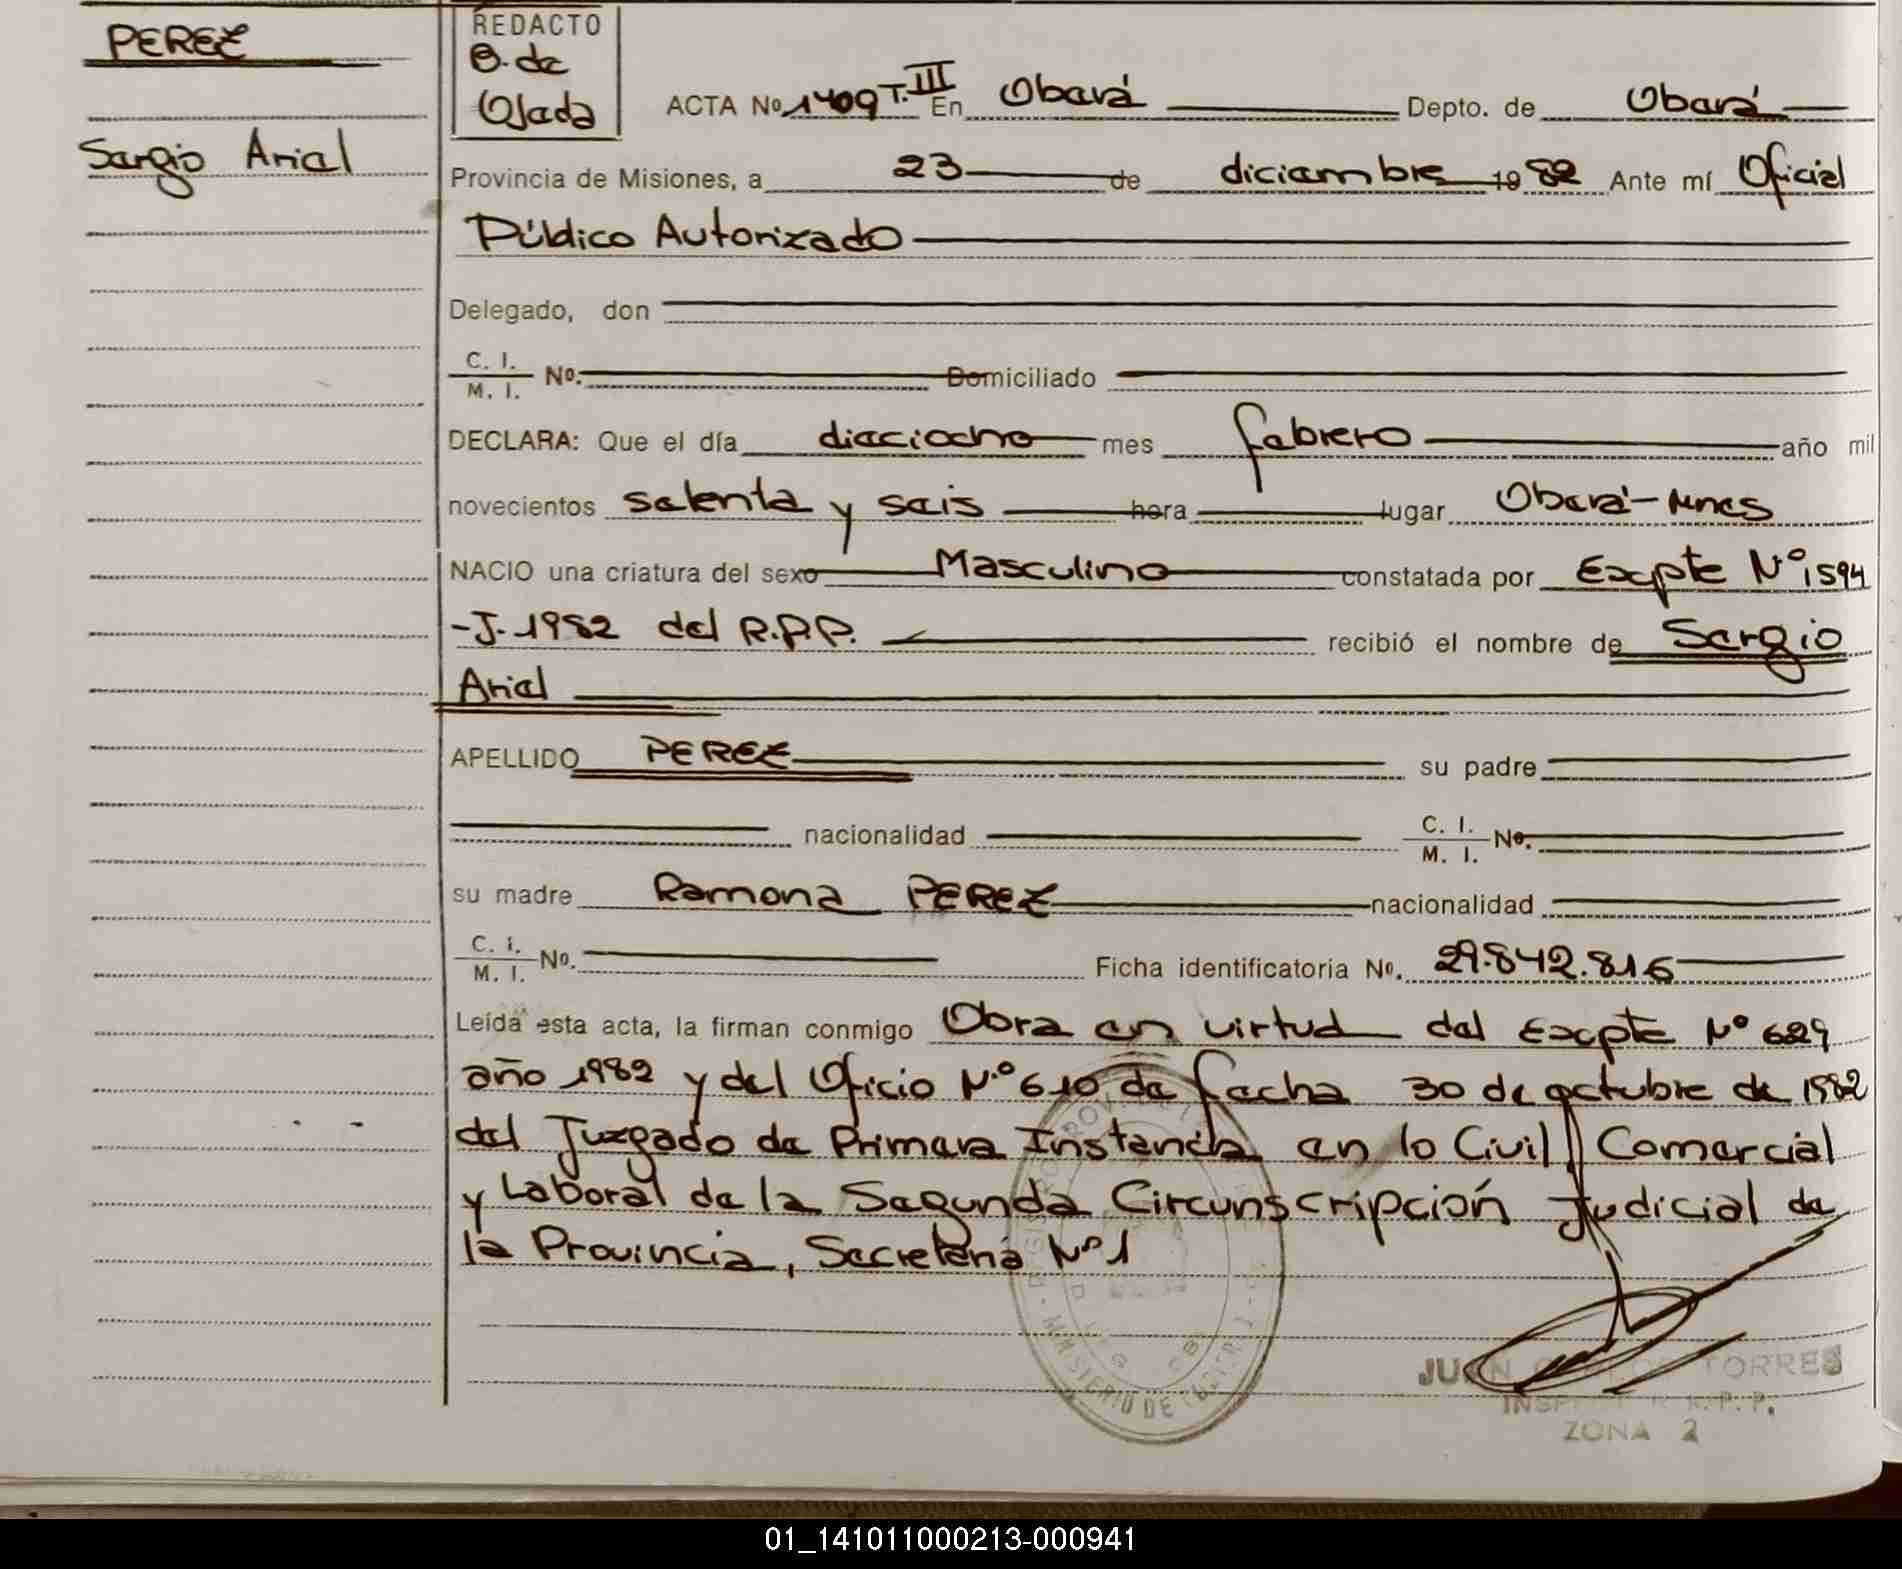 PEREZ
Sergio Ariel
REDACTO
B. de
Ojeda
ACTA No 1409 T. III En Oberá Depto. de Oberá
Provincia de Misiones, a 23 de diciembre 1982 Ante mí Oficial
Público Autorizado
Delegado, don
C. I.
M. I. No. Domiciliado
DECLARA: Que el día dieciocho mes febrero año mil
novecientos setenta y seis hora lugar Oberá-Mnes
NACIO una criatura del sexo Masculino constatada por Expte Nº 1594
-J-1982 del R.P.P. recibió el nombre de Sergio
Ariel
APELLIDO PEREZ su padre
nacionalidad C. I.
M. I. No.
su madre Ramona PEREZ nacionalidad
C. I.
M. I. No. Ficha identificatoria No. 29.842.816
Leída esta acta, la firman conmigo Obra en virtud del Expte Nº 629
año 1982 y del Oficio N.º 610 de fecha 30 de octubre de 1982
del Juzgado de Primera Instancia en lo Civil, Comercial
y Laboral de la Segunda Circunscripción Judicial de
la Provincia, Secretaría Nº 1
MINISTERIO DE
JUAN TORRES
R.P.P.
ZONA 2
01_141011000213-000941